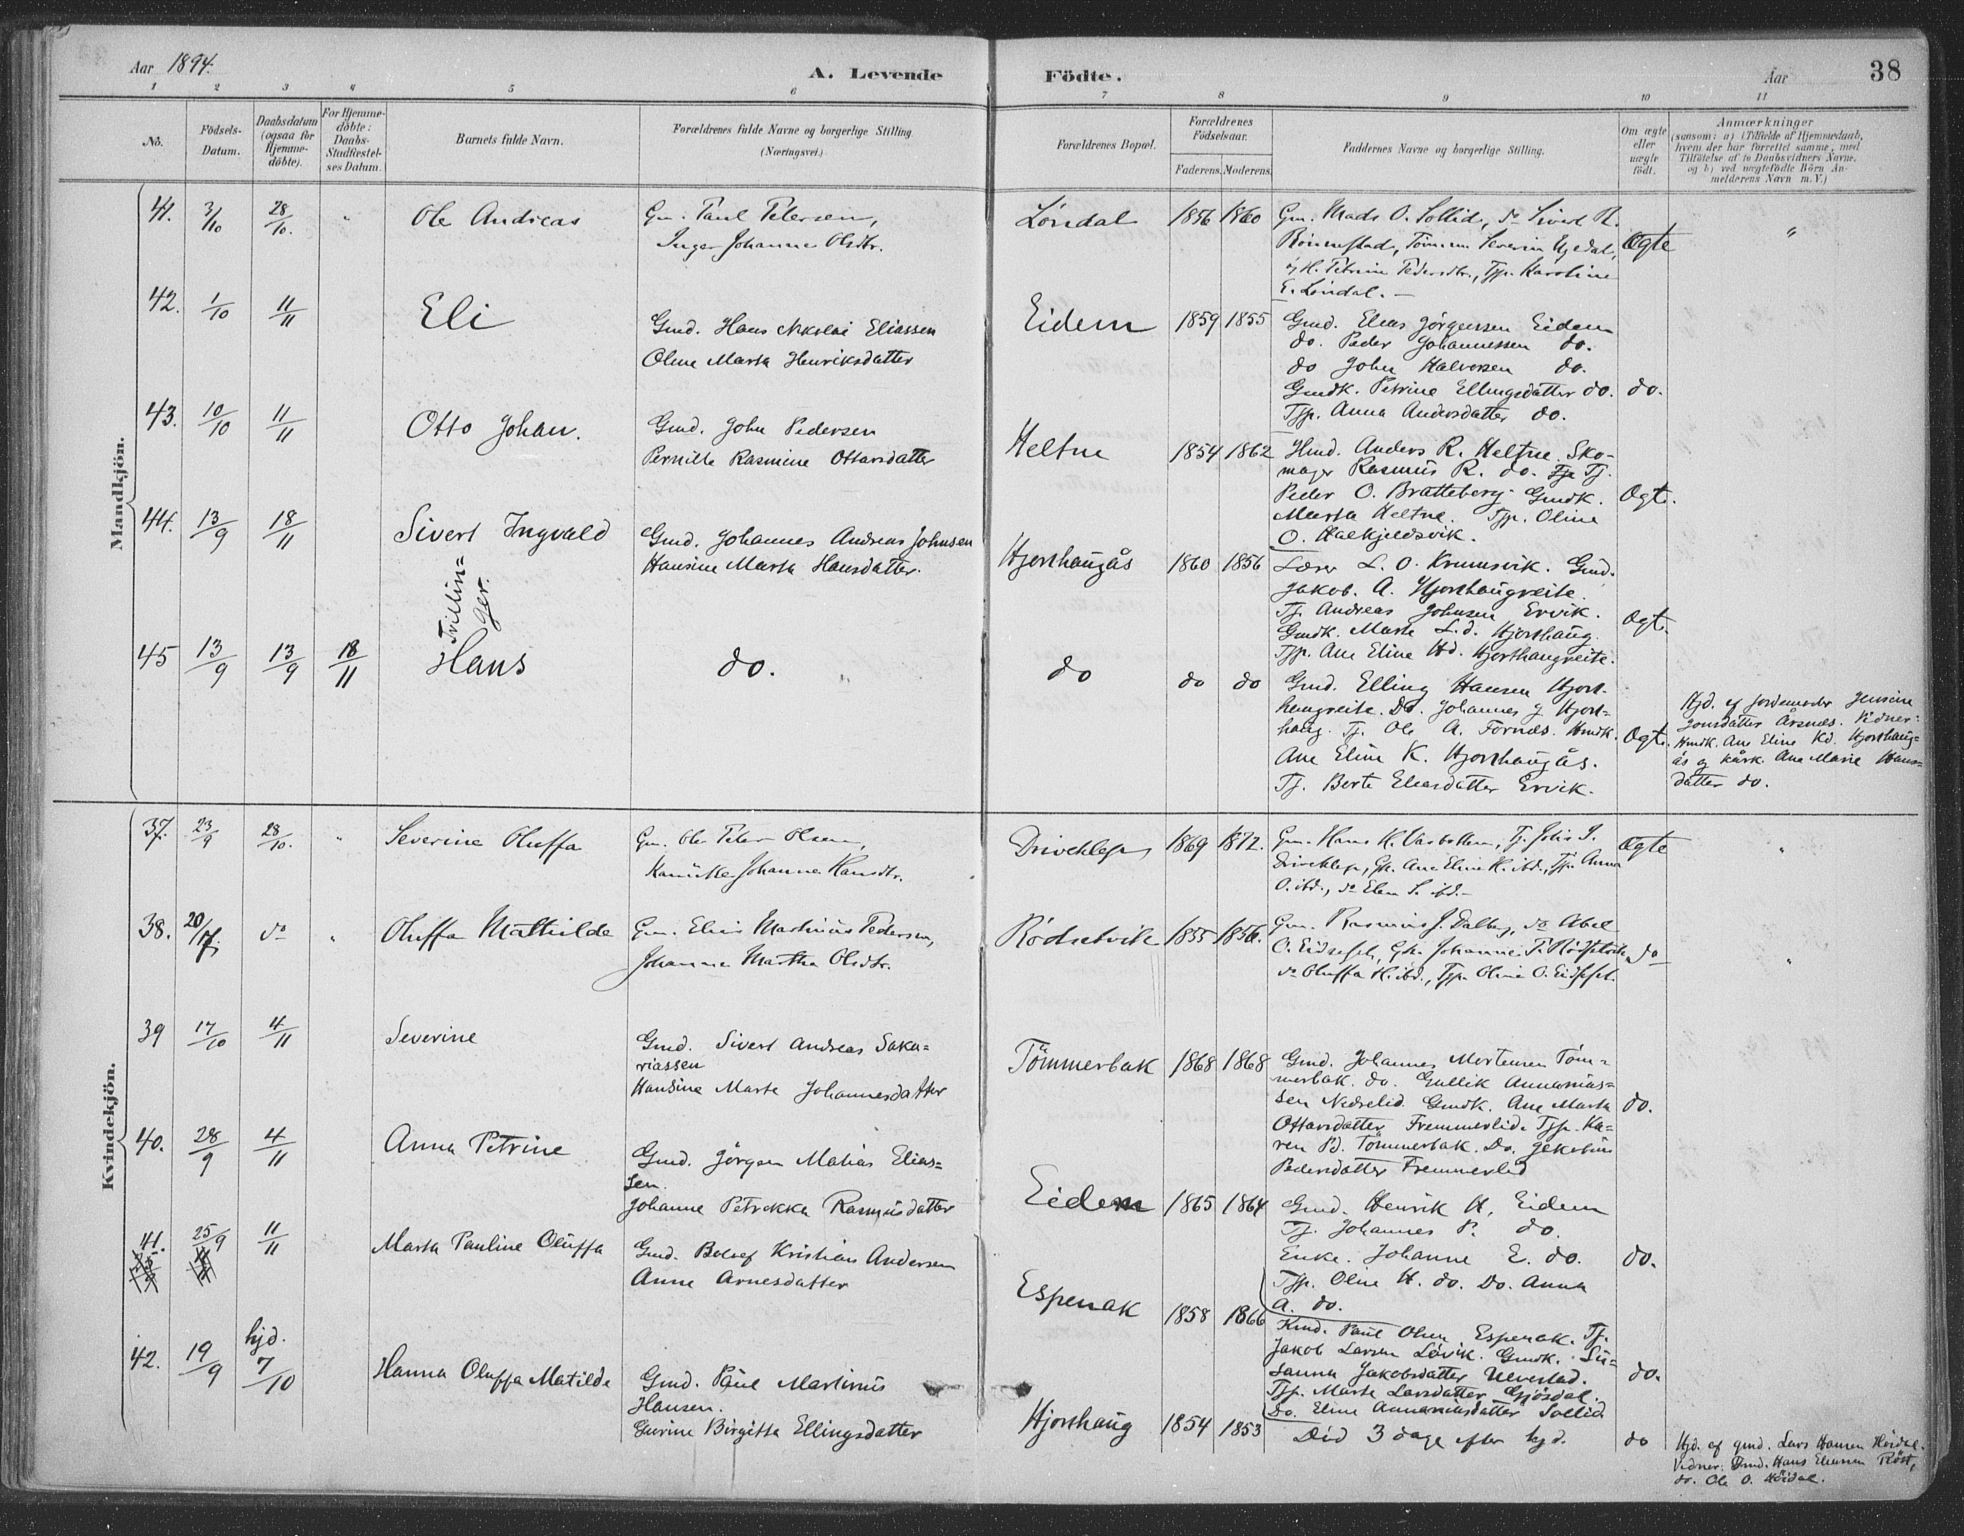 Aar 1894.
A. Levende Födte.
Aar 38
1 2 3 4 5 6 7 8 9 10 11
No.
Födsels-
Datum.
Daabsdatum
(ogsaa for
Hjemme-
döbte).
For Hjemme-
döbte:
Daabs-
Stadfæstel-
ses Datum.
Barnets fulde Navn.
Forældrenes fulde Navne og borgerlige Stilling.
(Næringsvei.)
Forældrenes Bopæl.
Forældrenes
Födselsaar.
Faderens. Moderens.
Faddernes Navne og borgerlige Stilling.
Om ægte
eller
uægte
födt.
Anmærkninger
(saasom: a) i Tilfælde af Hjemmedaab,
hvem der har forrettet samme, med
Tilföielse af to Daabsvidners Navne,
og b) ved uægtefödte Börn An-
melderens Navn m. V.)
Mandkjön.
41. 3/10 28/10. " Ole Andreas Gm. Paul Petersen, Löndal 1856 1860 Gm. Mads O. Sollid, do Sivert R.
Inger Johanne Olsdtr.
Rönnestad, Severin Ugedal, Ægte "
H. Petrine Pedersdtr., Tjp. Karoline
E. Löndal. —
42. 1/10 11/11 Eli Gmd. Hans Nikolai Eliassen Eidem 1859 1855 Gmd. Elias Jörgensen Eidem
Oline Marta Henriksdatter
do. Peder Johannessen do.
do John Halversen do.
Gmdk. Petrine Ellingsdatter do. do.
Tjp. Anna Andersdatter do.
43. 10/10 11/11 Otto Johan. Gmd. John Pedersen Heltne 1854 1862 Hmd. Anders R. Heltne. Sko-
Pernille Rasmine Ottarsdatter
mager Rasmus R. do. Tj.
Peder O. Bratteberg. Gmdk. Ogte.
Marta Heltne. Tjp. Oline
O. Halkjeldsvik.
44. 13/9 18/11 Sivert Ingvald Gmd. Johannes Andreas Johnsen Hjorthaugås 1860 1856 Lærer L. O. Krumsvik. Gmd.
Hansine Marta Hansdatter.
Jakob. A. Hjorthaugreite.
Tj. Andreas Johnsen Ervik. Ogte.
Gmdk. Marte L.d. Hjorthaug.
Tjp. Ane Eline Hd. Hjorthaugreite.
Tvillin-
ger.
45 13/9 13/9 18/11 Hans do. do do do Gmd. Elling Hansen Hjort-
haugreite. Do. Johannes J Hjort-
haug. Tj. Ole A. Fornes. Hmdk. Ogte.
Ane Eline K. Hjorthaugås.
Tj. Berte Eliasdatter Ervik.
Hjd. af Jordemoder Jensine
Jonsdatter Årsnes. Vidner:
Hmdk. Ane Eline Kd. Hjorthaug-
ås og kårk. Ane Marie Hans-
datter do.
Kvindekjön.
37. 23/9 28/10. " Severine Oluffa Gm. Ole Peter Olsen, Driveklep 1869 1872. Gm. Hans K. Vasbotten, Tj. S. Ægte "
Johanne Hansdtr.
Driveklep, Gk. Ane Eline K. ibd., Tjp. Anna
O. ibd., do Elen S. ibd.—
38. 20/7. do " Oluffa Mathilde Gm. Elias Martinus Pedersen, Rödsetvik 1855 1856. Gm. Rasmus J. Dalberg, do Abel
Johanne Martha Olsdtr.
O. Eidseset, Gk. Johanne T. Rödsetvik, do "
do Oluffa K. ibd., Tjp. Oline O. Eidseset.
39 17/10 4/11 Severine Gmd. Sivert Andreas Saka-
riassen
Hansine Marte Johannesdatter
Tömmerbak 1868 1868 Gmd. Johannes Mortensen Töm-
merbak. do. Gullik Annanias-
sen Nedrelid. Gmdk. Ane Marta do.
Ottarsdatter Fremmerlid. Tjp. Ka-
ren Pd. Tömmerbak. Do. Jekobine
Pedersdatter Fremmerlid
40. 28/9 4/11 Anna Petrine Gmd. Jörgen Matias Elias-
sen.
Johanne Petrikka Rasmusdatter
Eidem 1865 1864 Gmd. Henrik H. Eidem
Tj. Johannes P. do.
Enke. Johanne E. do. do.
Tjp. Oline H. do. Do. Anna
A. do.
41. 25/9 11/11 Marta Pauline Oluffa Gmd. Kristian Andersen
Anne Arnesdatter
Espenak 1858 1866 Kmd. Paul Olsen Espenak. Tj.
Jakob Larsen Lövik. Gmdk. Su-
sanna Jakobsdatter Ulvestad. do.
Tjp. Marte Larsdatter Gjösdal.
Do. Eline Annaniasdatter Sollid
42. 19/9 hjd. 7/10 Hanna Oluffa Matilde Gmd. Paul Martinus
Hansen.
Gurine Birgitta Ellingsdatter
Hjorthaug 1854 1853 Död 3 dage efter hjd. do
Hjd. af gmd. Lars Hansen Höidal.
Vidner: Gmd. Hans Eliassen Röst,
do. Ole O. Höidal.